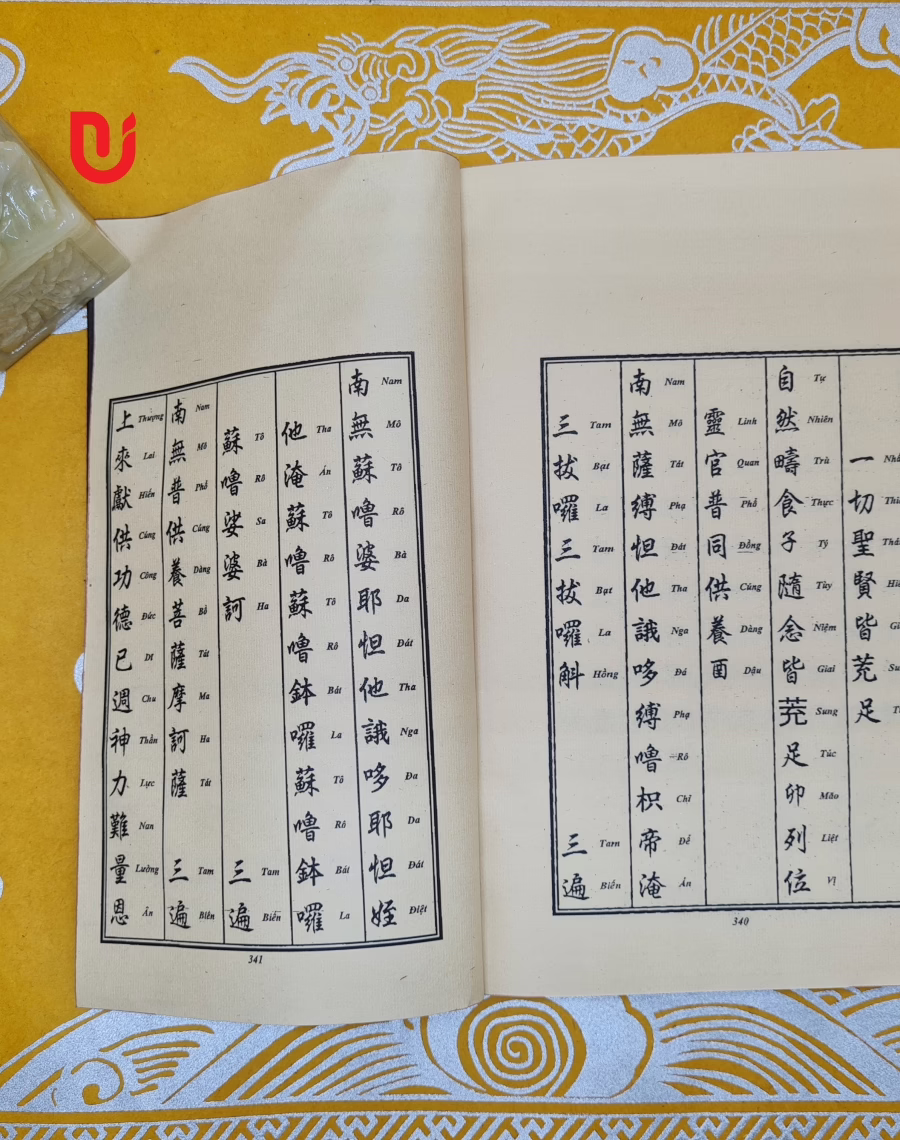 一切聖賢皆茺足
自然疇食子隨念皆茺足卯列位
Tự Nhiên Trù Thực Tý Tùy Niệm Giai Sung Túc Mão Liệt Vị
靈官普同供養酉
Linh Quan Phổ Đồng Cúng Dàng Dậu
南無薩縛怛他誐哆縛嚕枳帝淹
Nam Mô Tát Phạ Đát Tha Nga Đá Phạ Rô Chỉ Đế Án
三拔囉三拔囉斛 三遍
Tam Bạt La Tam Bạt La Hồng Tam Biến
340
南無蘇嚕婆耶怛他誐哆耶怛姪
Nam Mô Tô Rô Bà Da Đát Tha Nga Đa Da Đát Điệt
他淹蘇嚕蘇嚕鉢囉蘇嚕鉢囉
Tha Án Tô Rô Tô Rô Bát La Tô Rô Bát La
蘇嚕娑婆訶 三遍
Tô Rô Sa Bà Ha Tam Biến
南無普供養菩薩摩訶薩 三遍
Nam Mô Phổ Cúng Dàng Bồ Tát Ma Ha Tát Tam Biến
上來獻供功德已週神力難量恩
Thượng Lai Hiến Cúng Công Đức Dĩ Chu Thần Lực Nan Lường Ân
341